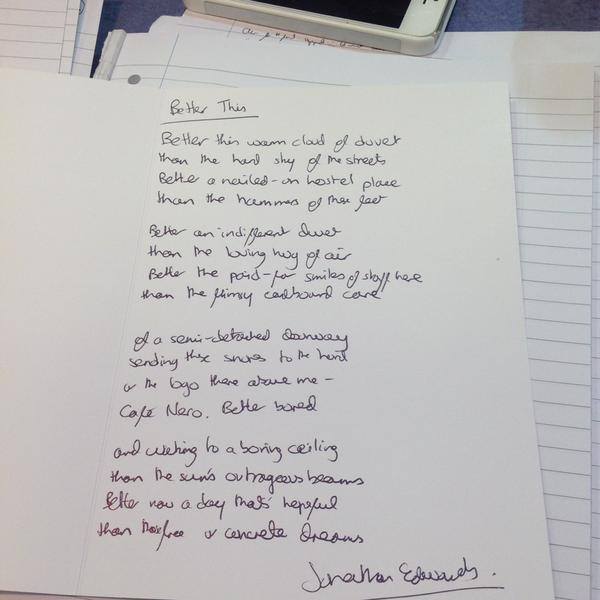 Better This
Better this warm cloud of duvet
than the hard sky of the streets
Better a nailed-on hostel place
than the hammers of their feet
Better an indifferent duvet
than the loving hug of air
Better the paid-for smiles of staff here
than the flimsy cardboard care
of a semi-detached doorway
sending these snores to the
or the logo there above me –
Café Nero. Better bored
and waking to a boring ceiling
than the sun's outrageous beams
Better now a day that's hopeful
than or concrete dreams
Jonathan Edwards.